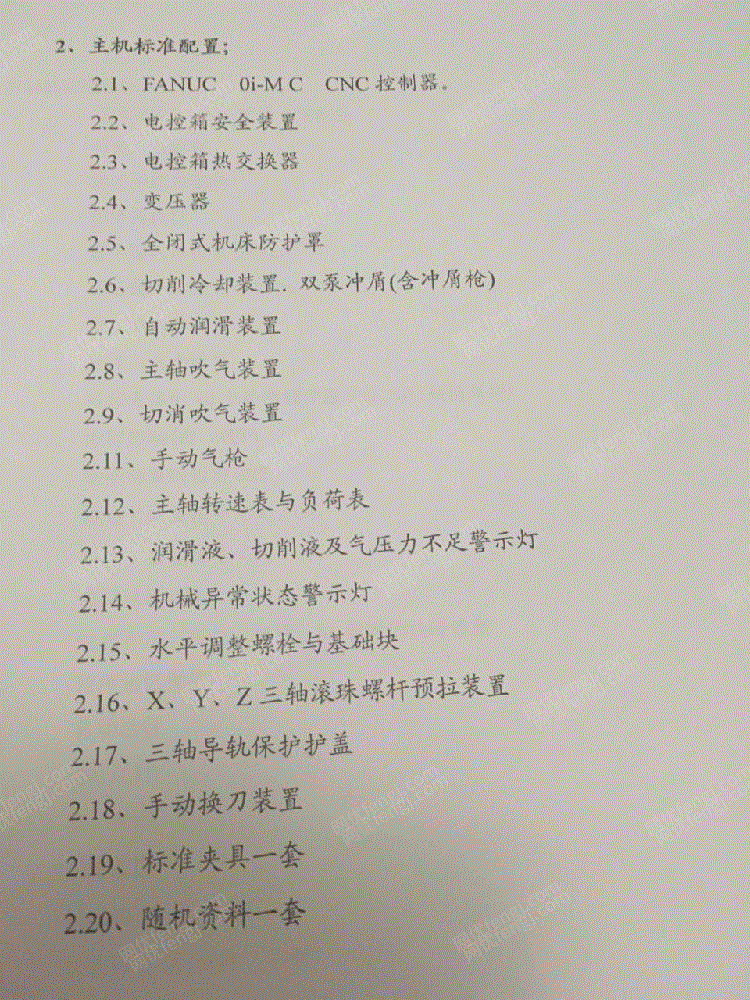 2、主机标准配置;
2.1、FANUC 0i-M C CNC 控制器。
2.2、电控箱安全装置
2.3、电控箱热交换器
2.4、变压器
2.5、全闭式机床防护罩
2.6、切削冷却装置. 双泵冲屑(含冲屑枪)
2.7、自动润滑装置
2.8、主轴吹气装置
2.9、切消吹气装置
2.11、手动气枪
2.12、主轴转速表与负荷表
2.13、润滑液、切削液及气压力不足警示灯
2.14、机械异常状态警示灯
2.15、水平调整螺栓与基础块
2.16、X、Y、Z 三轴滚珠螺杆预拉装置
2.17、三轴导轨保护护盖
2.18、手动换刀装置
2.19、标准夹具一套
2.20、随机资料一套